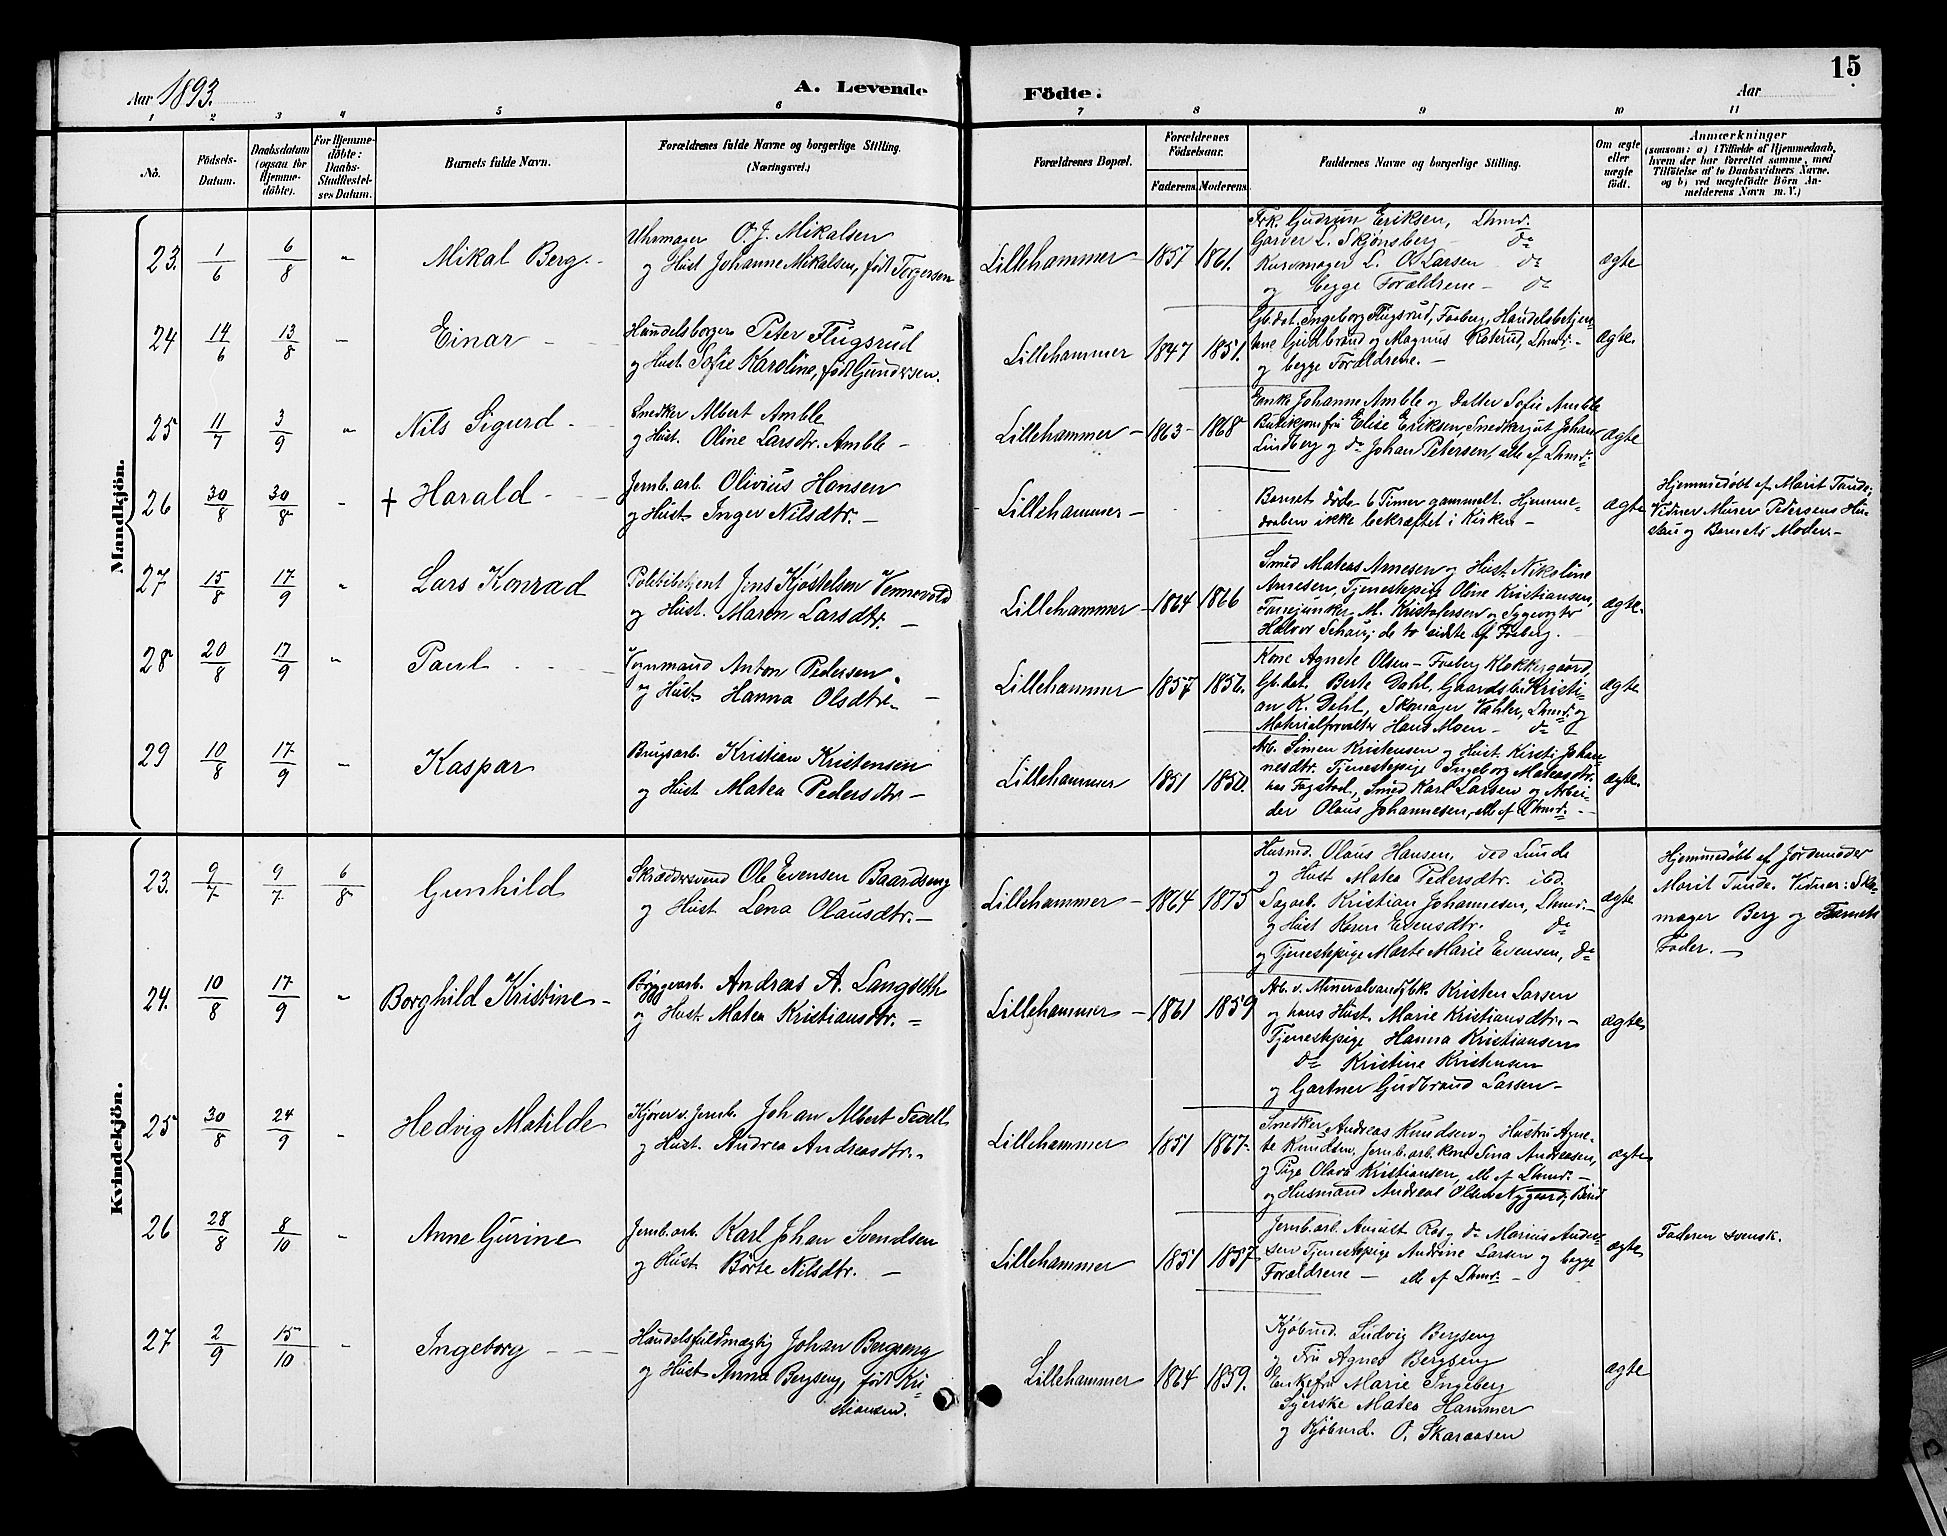 15
Aar 1893.
A. Levende
Födte.
Aar
1 2 3 4 5 6 7 8 9 10 11
No.
Födsels-
Datum.
Daabsdatum
(ogsaa for
Hjemme-
döbte).
For Hjemme-
döbte:
Daabs-
Stadfæstel-
ses Datum.
Barnets fulde Navn.
Forældrenes fulde Navne og borgerlige Stilling.
(Næringsvei.)
Forældrenes Bopæl.
Forældrenes
Födselsaar.
Faderens. Moderens.
Faddernes Navne og borgerlige Stilling.
Om ægte
eller
uægte
födt.
Anmærkninger
(saasom: a) i Tilfælde af Hjemmedaab,
hvem der har forrettet samme, med
Tilföielse af to Daabsvidners Navne,
og b) ved uægtefödte Börn An-
melderens Navn m. V.)
Mandkjön.
23. 1/6 6/8 " Mikal Berg -
Uhrmager O. J. Mikalsen
og Hust. Johanne Mikalsen, født Torgersen
Lillehammer 1857 1861.
Frk. Gudrun Eriksen, Lhmr.
Garver L. Skjønsberg - do
L. O. Larsen do
og begge Forældrene - do
ægte
24 14/6 13/8 " Einar - -
Handelsborger Peter Flugsrud
og Hust. Sofie Karoline, født Gundersen.
Lillehammer 1847 1851.
Gb.dat. Ingeborg Flugsrud, Faaberg, Handelsbetjen-
tene Gudbrand og Magnus Roterud, Lhmr. -
og begge Forældrene. -
ægte.
25 11/7 3/9 " Nils Sigurd - -
Snedker Albert Amble
og Hust. Oline Larsdtr. Amble -
Lillehammer - 1863 - 1868
Enke Johanne Amble og Datter Sofie Amble
Butikjomfru Elise Eriksen, Snedkergut Johan
Lindberg og do Johan Petersen, alle af Lhmr. -
ægte
26 30/8 30/8 " † Harald - -
Jernb.arb. Olivius Hansen
og Hust. Inger Nilsdtr. -
Lillehammer -
Barnet døde 6 Timer gammelt. Hjemme-
daaben ikke bekræftet i Kirken -
ægte
Hjemmedøbt af Marit Tande;
Vidner Murer Pedersens Hu-
stru og Barnets Moder. -
27 15/8 17/9 " Lars Konrad
Politibetjent Jens Kjøstelsen Vennevold
og Hust. Maren Larsdtr. -
Lillehammer - 1864 1866
Smed Mateas Arnesen og Hust. Nikoline
Arnesen, Tjenestepige Oline Kristiansen,
M. Kristofersen og Sygevogter
Halvor Schau; de to sidste af Faaberg.
ægte.
28 20/8 17/9 " Paul - -
Vognmand Anton Pedersen
og Hust. Hanna Olsdtr. -
Lillehammer 1857 1856.
Kone Agnete Olsen - Faaberg Klokkergaard,
Gb.dat. Berte Dahl, Gaardsbr. Kristi-
an K. Dahl, Skomager Lhmr. og
Materialforvalter Hans Moen - do
ægte
29 10/8 17/9 " Kaspar
Brugsarb. Kristian Kristensen
og Hust. Matea Pedersdtr. -
Lillehammer 1851 1850.
Arb. Simen Kristensen og Hust. Kirsti Johan-
nesdtr. Tjenestepige Ingeborg Mateasdtr.
hos Fagstad, Smed Karl Larsen og Arbei-
der Olaus Johannesen, alle af Lhmr. -
ægte.
Kvindekjön.
23. 9/7 9/7 6/8 Gunhild
Skræddersvend Ole Evensen Baardseng
og Hust. Lena Olausdtr. -
Lillehammer - 1864 1875
Husmd. Olaus Hansen, ved Lunde
og Hust. Matea Pedersdtr. ibd.
Sagarb. Kristian Johannesen, Lhmr. -
og Hust. Karen Evensdtr. do
og Tjenestepige Marte Marie Evensen, do
ægte
Hjemmedøbt af Jordemoder
Marit Tande. Vidner: Sko-
mager Berg og Barnets
Fader. -
24. 10/8 17/9 " Borghild Kristine -
Bryggeriarb. Andreas A. Langseth
og Hust. Matea Kristiansdtr. -
Lillehammer - 1861 1859
Arb. v. Mineralvandfbk. Kristen Larsen
og hans Hust. Marie Kristiansdtr. -
Tjenestepige Hanna Kristiansen
do Kristine Kristensen
og Gartner Gudbrand Larsen -
ægte
25 30/8 24/9 " Hedvig Matilde
Kjører v. Jernb. Johan Albert Sedell
og Hust. Andrea Andreasdtr. -
Lillehammer 1851 1867.
Snedker Andreas Knudsen og Hustru Agne-
te Knudsen, Jernb.arb. kone Lina Andreasen,
og Pige Olava Kristiansen, alle af Lhmr. -
og Husmand Andreas Olsen Nygaard,
ægte
26 28/8 8/10 " Anne Gurine
Jernb.arb. Karl Johan Svendsen
og Hust. Børte Nilsdtr. -
Lillehammer 1851 1857.
Jernb.arb. August Ros og do Marius Ander-
sen Tjenestepige Andrine Larsen og begge
Forældrene - alle af Lhmr. -
ægte
Faderen svensk.
27 2/9 15/10 " Ingeborg - -
Handelsfuldmægtig Johan Bergseng
og Hust. Anna Bergseng, født Kri-
stiansen.
Lillehammer 1864 1859.
Kjøbmd. Ludvig Bergseng
og Fru Agnes Bergseng
Enkefru Marie Ingeberg
Syerske Matea Hammer
og Kjøbmd. O. Skaraasen
ægte